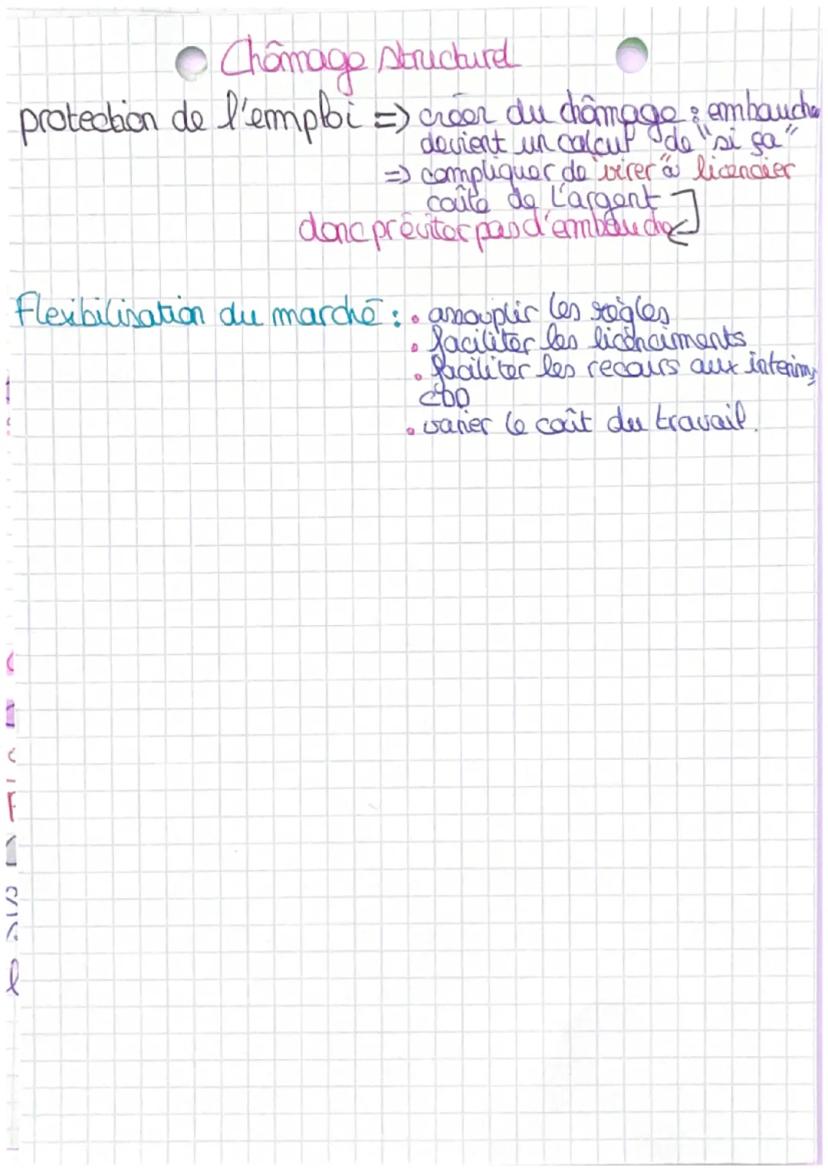 Chômage structurel
protection de l'emploi => créer du chômage : embauche
devient un calcul de "si ça"
=> compliquer de "virer" à licencier
coûte de l'argent
donc préviter pas d'embauche
Flexibilisation du marché : • assouplir les règles
• faciliter les licenciments
• faciliter les recours aux interims
CDD
• varier le coût du travail.